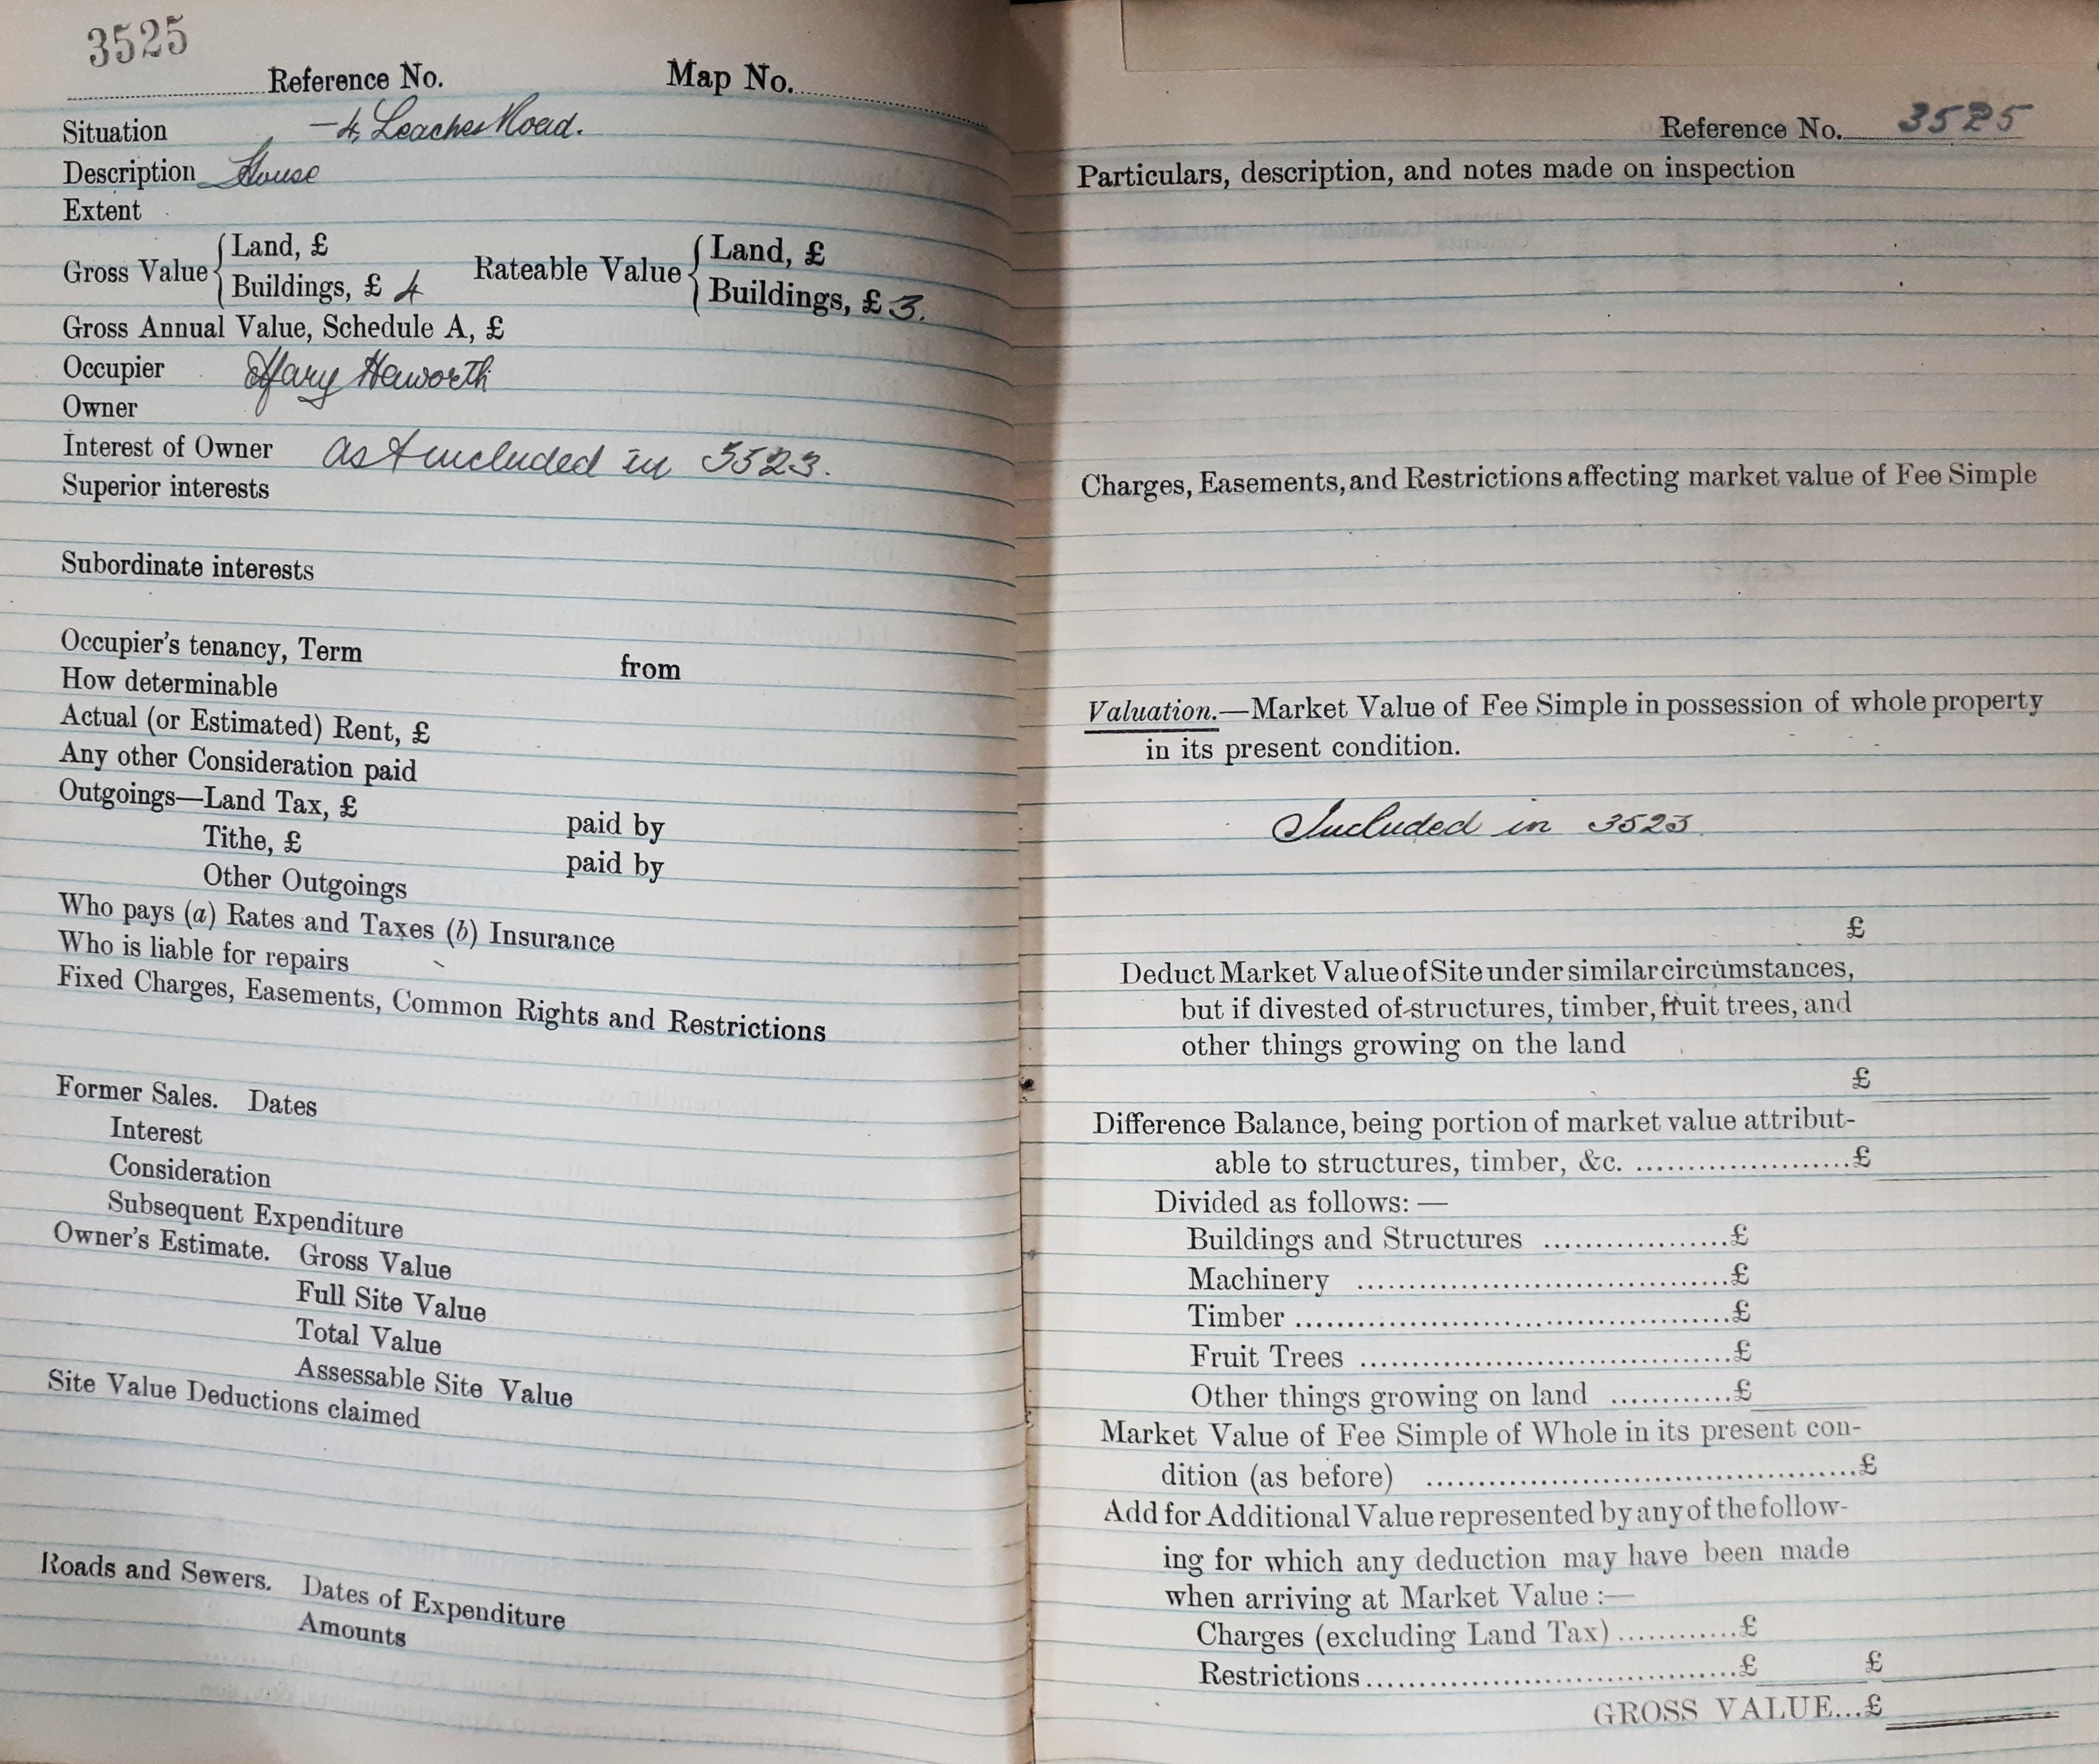 3525
Reference No. Map No.
Situation -4, Leaches Road.
Description House
Extent
Gross Value { Land, £ Rateable Value { Land, £
Buildings, £ 4 Buildings, £ 3.
Gross Annual Value, Schedule A, £
Occupier Mary Haworth
Owner
Interest of Owner as & included in 3523.
Superior interests
Subordinate interests
Occupier's tenancy, Term from
How determinable
Actual (or Estimated) Rent, £
Any other Consideration paid
Outgoings—Land Tax, £ paid by
Tithe, £ paid by
Other Outgoings
Who pays (a) Rates and Taxes (b) Insurance
Who is liable for repairs
Fixed Charges, Easements, Common Rights and Restrictions
Former Sales. Dates
Interest
Consideration
Subsequent Expenditure
Owner's Estimate. Gross Value
Full Site Value
Total Value
Assessable Site Value
Site Value Deductions claimed
Roads and Sewers. Dates of Expenditure
Amounts
Reference No. 3525
Particulars, description, and notes made on inspection
Charges, Easements, and Restrictions affecting market value of Fee Simple
Valuation.—Market Value of Fee Simple in possession of whole property
in its present condition.
Included in 3523.
£
Deduct Market Value of Site under similar circumstances,
but if divested of structures, timber, fruit trees, and
other things growing on the land
£
Difference Balance, being portion of market value attribut-
able to structures, timber, &c. .....................£
Divided as follows: —
Buildings and Structures ..................£
Machinery ....................................£
Timber ..........................................£
Fruit Trees ....................................£
Other things growing on land ............£
Market Value of Fee Simple of Whole in its present con-
dition (as before) ..........................................£
Add for Additional Value represented by any of the follow-
ing for which any deduction may have been made
when arriving at Market Value :—
Charges (excluding Land Tax) ............£
Restrictions ....................................£ £
GROSS VALUE...£